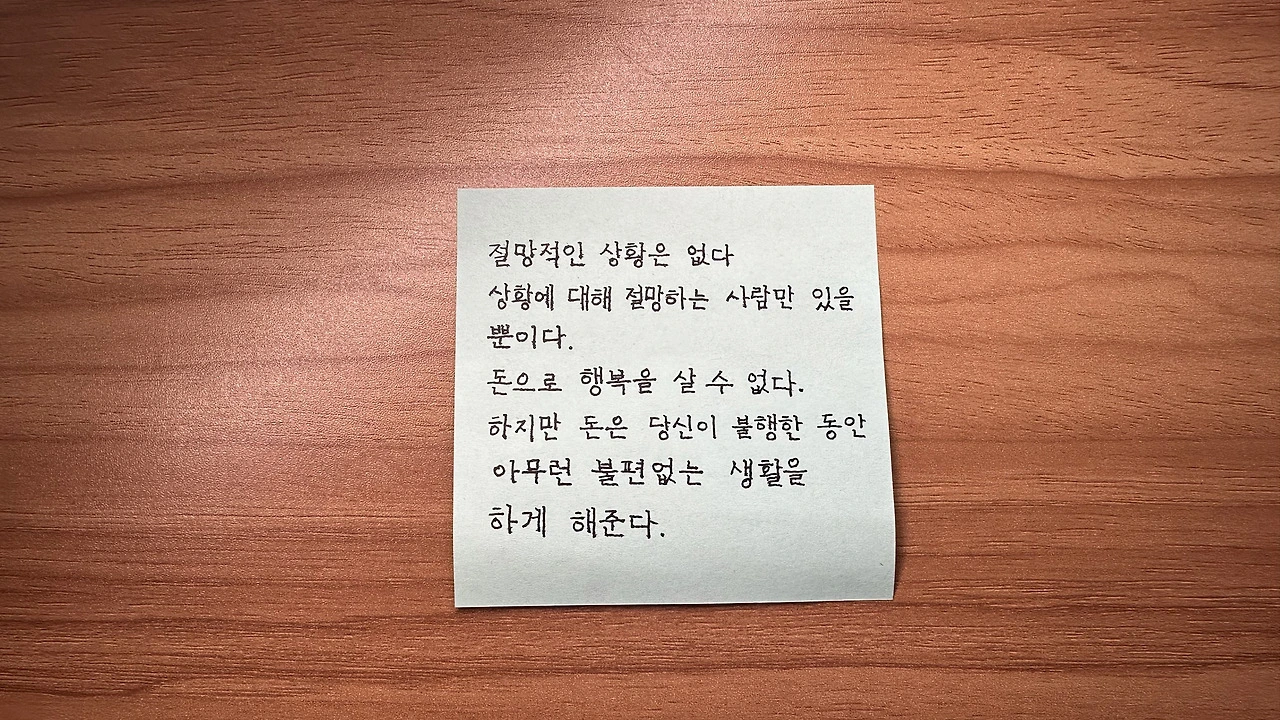 절망적인 상황은 없다
상황에 대해 절망하는 사람만 있을
뿐이다.
돈으로 행복을 살 수 없다.
하지만 돈은 당신이 불행한 동안
아무런 불편없는 생활을
하게 해준다.